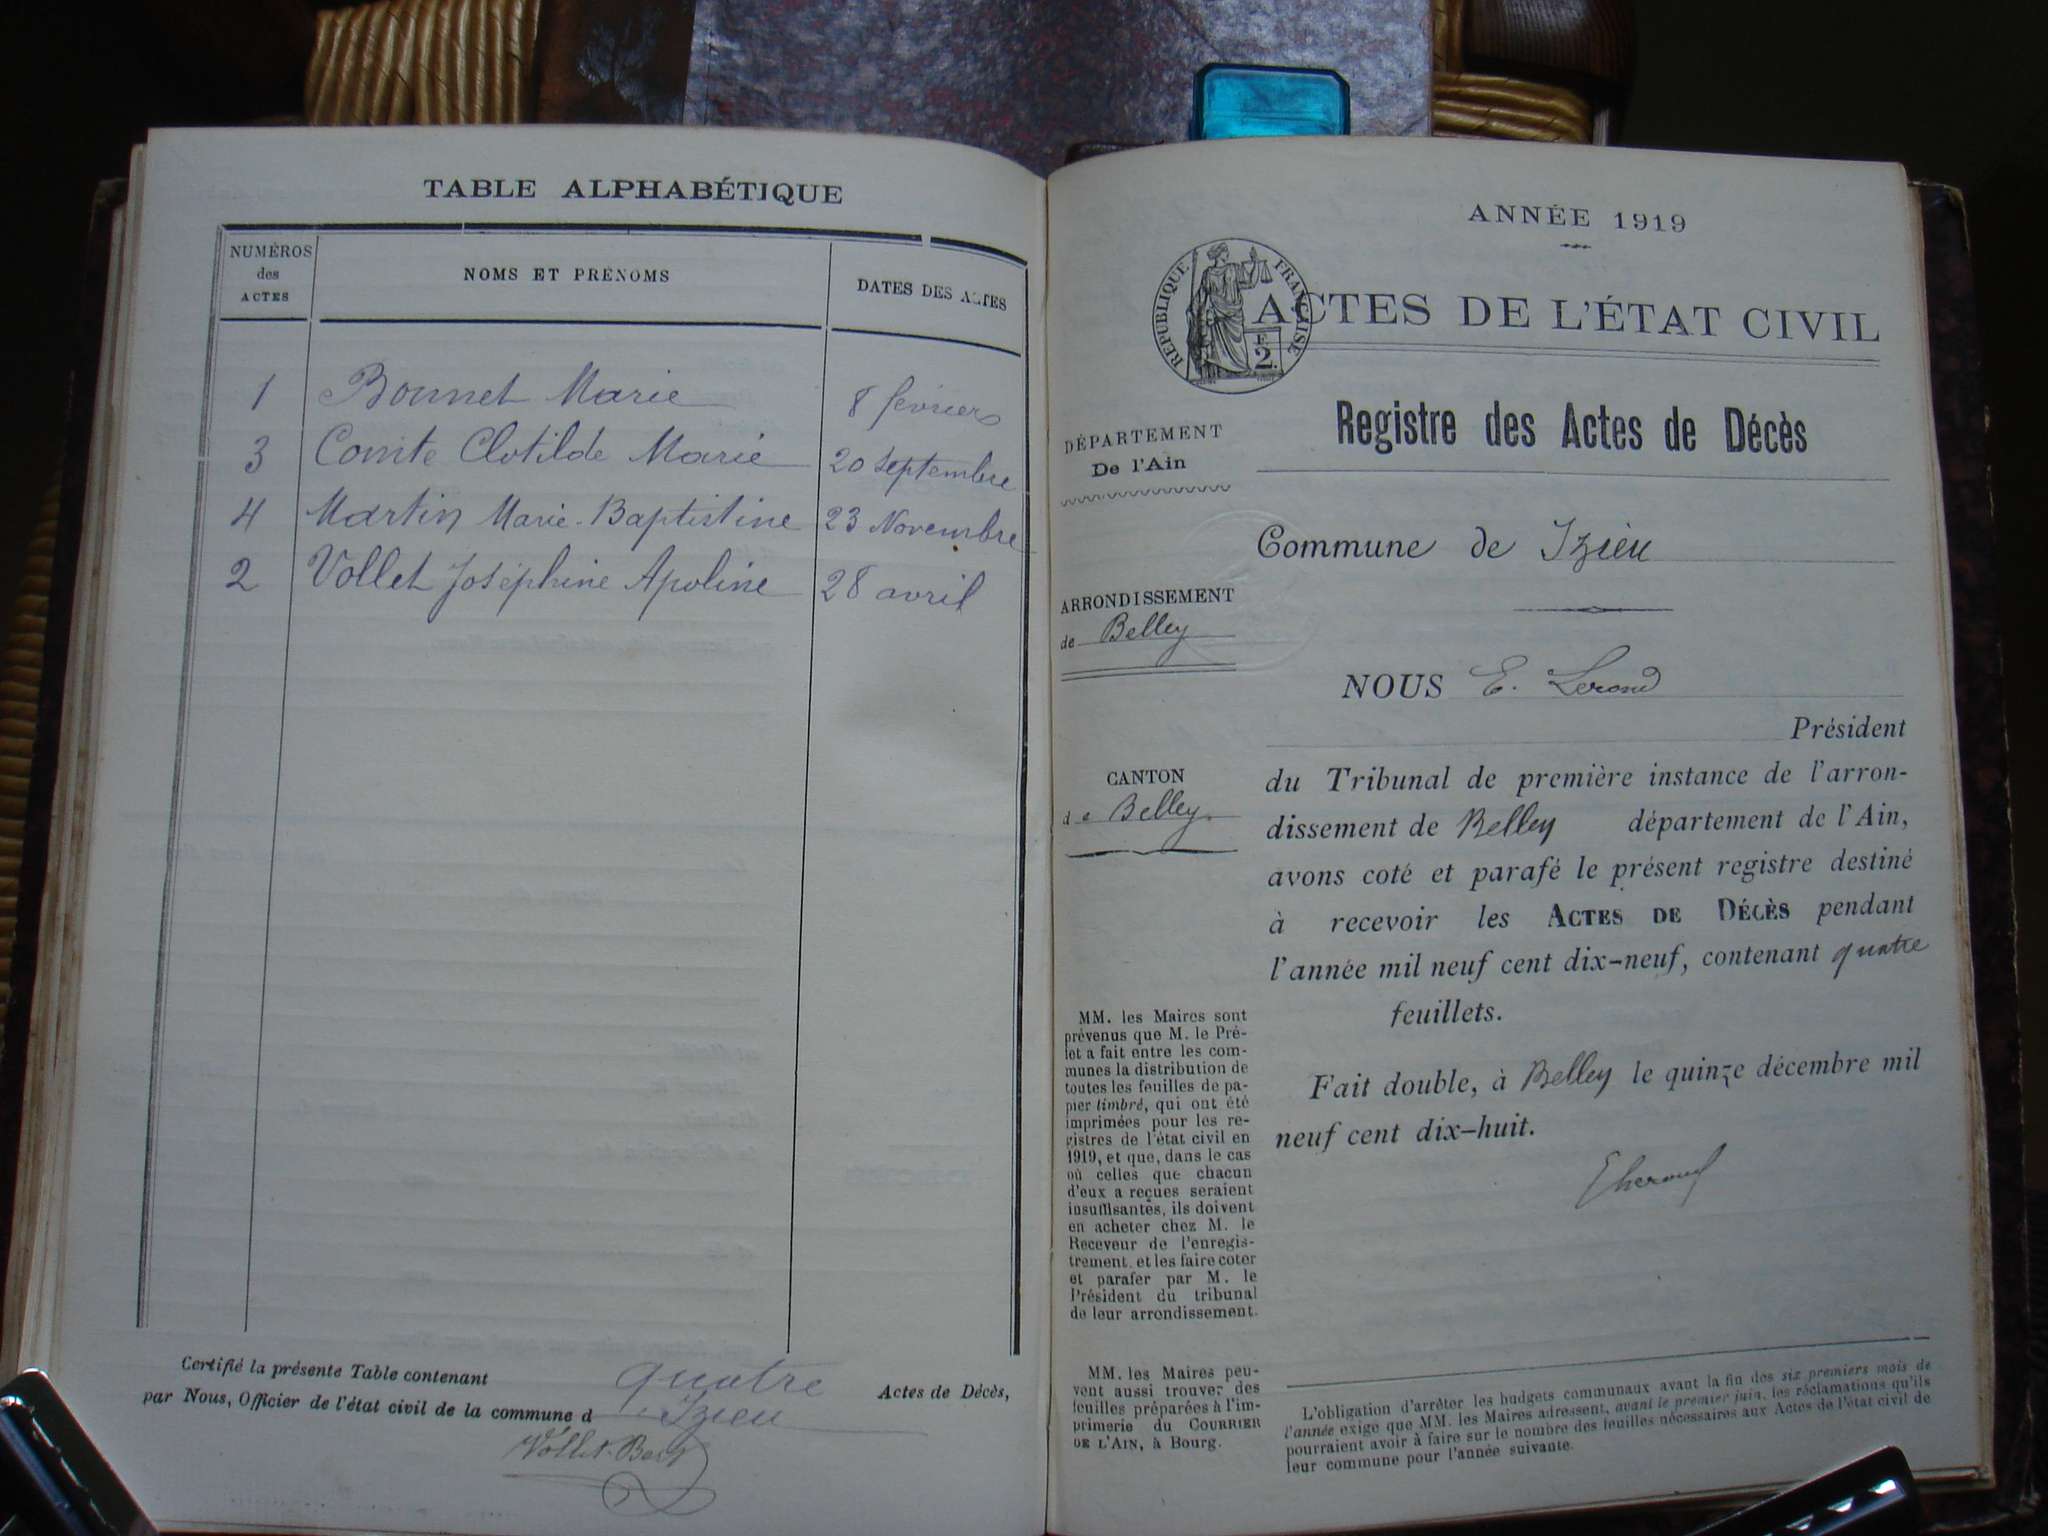 TABLE ALPHABÉTIQUE
NUMÉROS des ACTES NOMS ET PRÉNOMS DATES DES ACTES
1 Bonnet Marie 8 février
3 Comte Clotilde Marie 20 septembre
4 Martin Marie-Baptistine 23 Novembre
2 Vollet Joséphine Apoline 28 avril
Certifié la présente Table contenant quatre Actes de Décès,
par Nous, Officier de l'état civil de la commune d Izieu
Vollet
ANNÉE 1919
RÉPUBLIQUE FRANÇAISE
F. 2.
ACTES DE L'ÉTAT CIVIL
Registre des Actes de Décès
DÉPARTEMENT
De l'Ain
Commune de Izieu
ARRONDISSEMENT
de Belley
NOUS E.
Président
CANTON
de Belley.
du Tribunal de première instance de l'arron-
dissement de Belley département de l'Ain,
avons coté et parafé le présent registre destiné
à recevoir les ACTES DE DÉCÈS pendant
l'année mil neuf cent dix-neuf, contenant quatre
feuillets.
Fait double, à Belley le quinze décembre mil
neuf cent dix-huit.
MM. les Maires sont
prévenus que M. le Pré-
fet a fait entre les com-
munes la distribution de
toutes les feuilles de pa-
pier timbré, qui ont été
imprimées pour les re-
gistres de l'état civil en
1919, et que, dans le cas
où celles que chacun
d'eux a reçues seraient
insuffisantes, ils doivent
en acheter chez M. le
Receveur de l'enregis-
trement, et les faire coter
et parafer par M. le
Président du tribunal
de leur arrondissement.
MM. les Maires peu-
vent aussi trouver des
feuilles préparées à l'im-
primerie du COURRIER
DE L'AIN, à Bourg.
L'obligation d'arrêter les budgets communaux avant la fin des six premiers mois de
l'année exige que MM. les Maires adressent, avant le premier juin, les réclamations qu'ils
pourraient avoir à faire sur le nombre des feuilles nécessaires aux Actes de l'état civil de
leur commune pour l'année suivante.